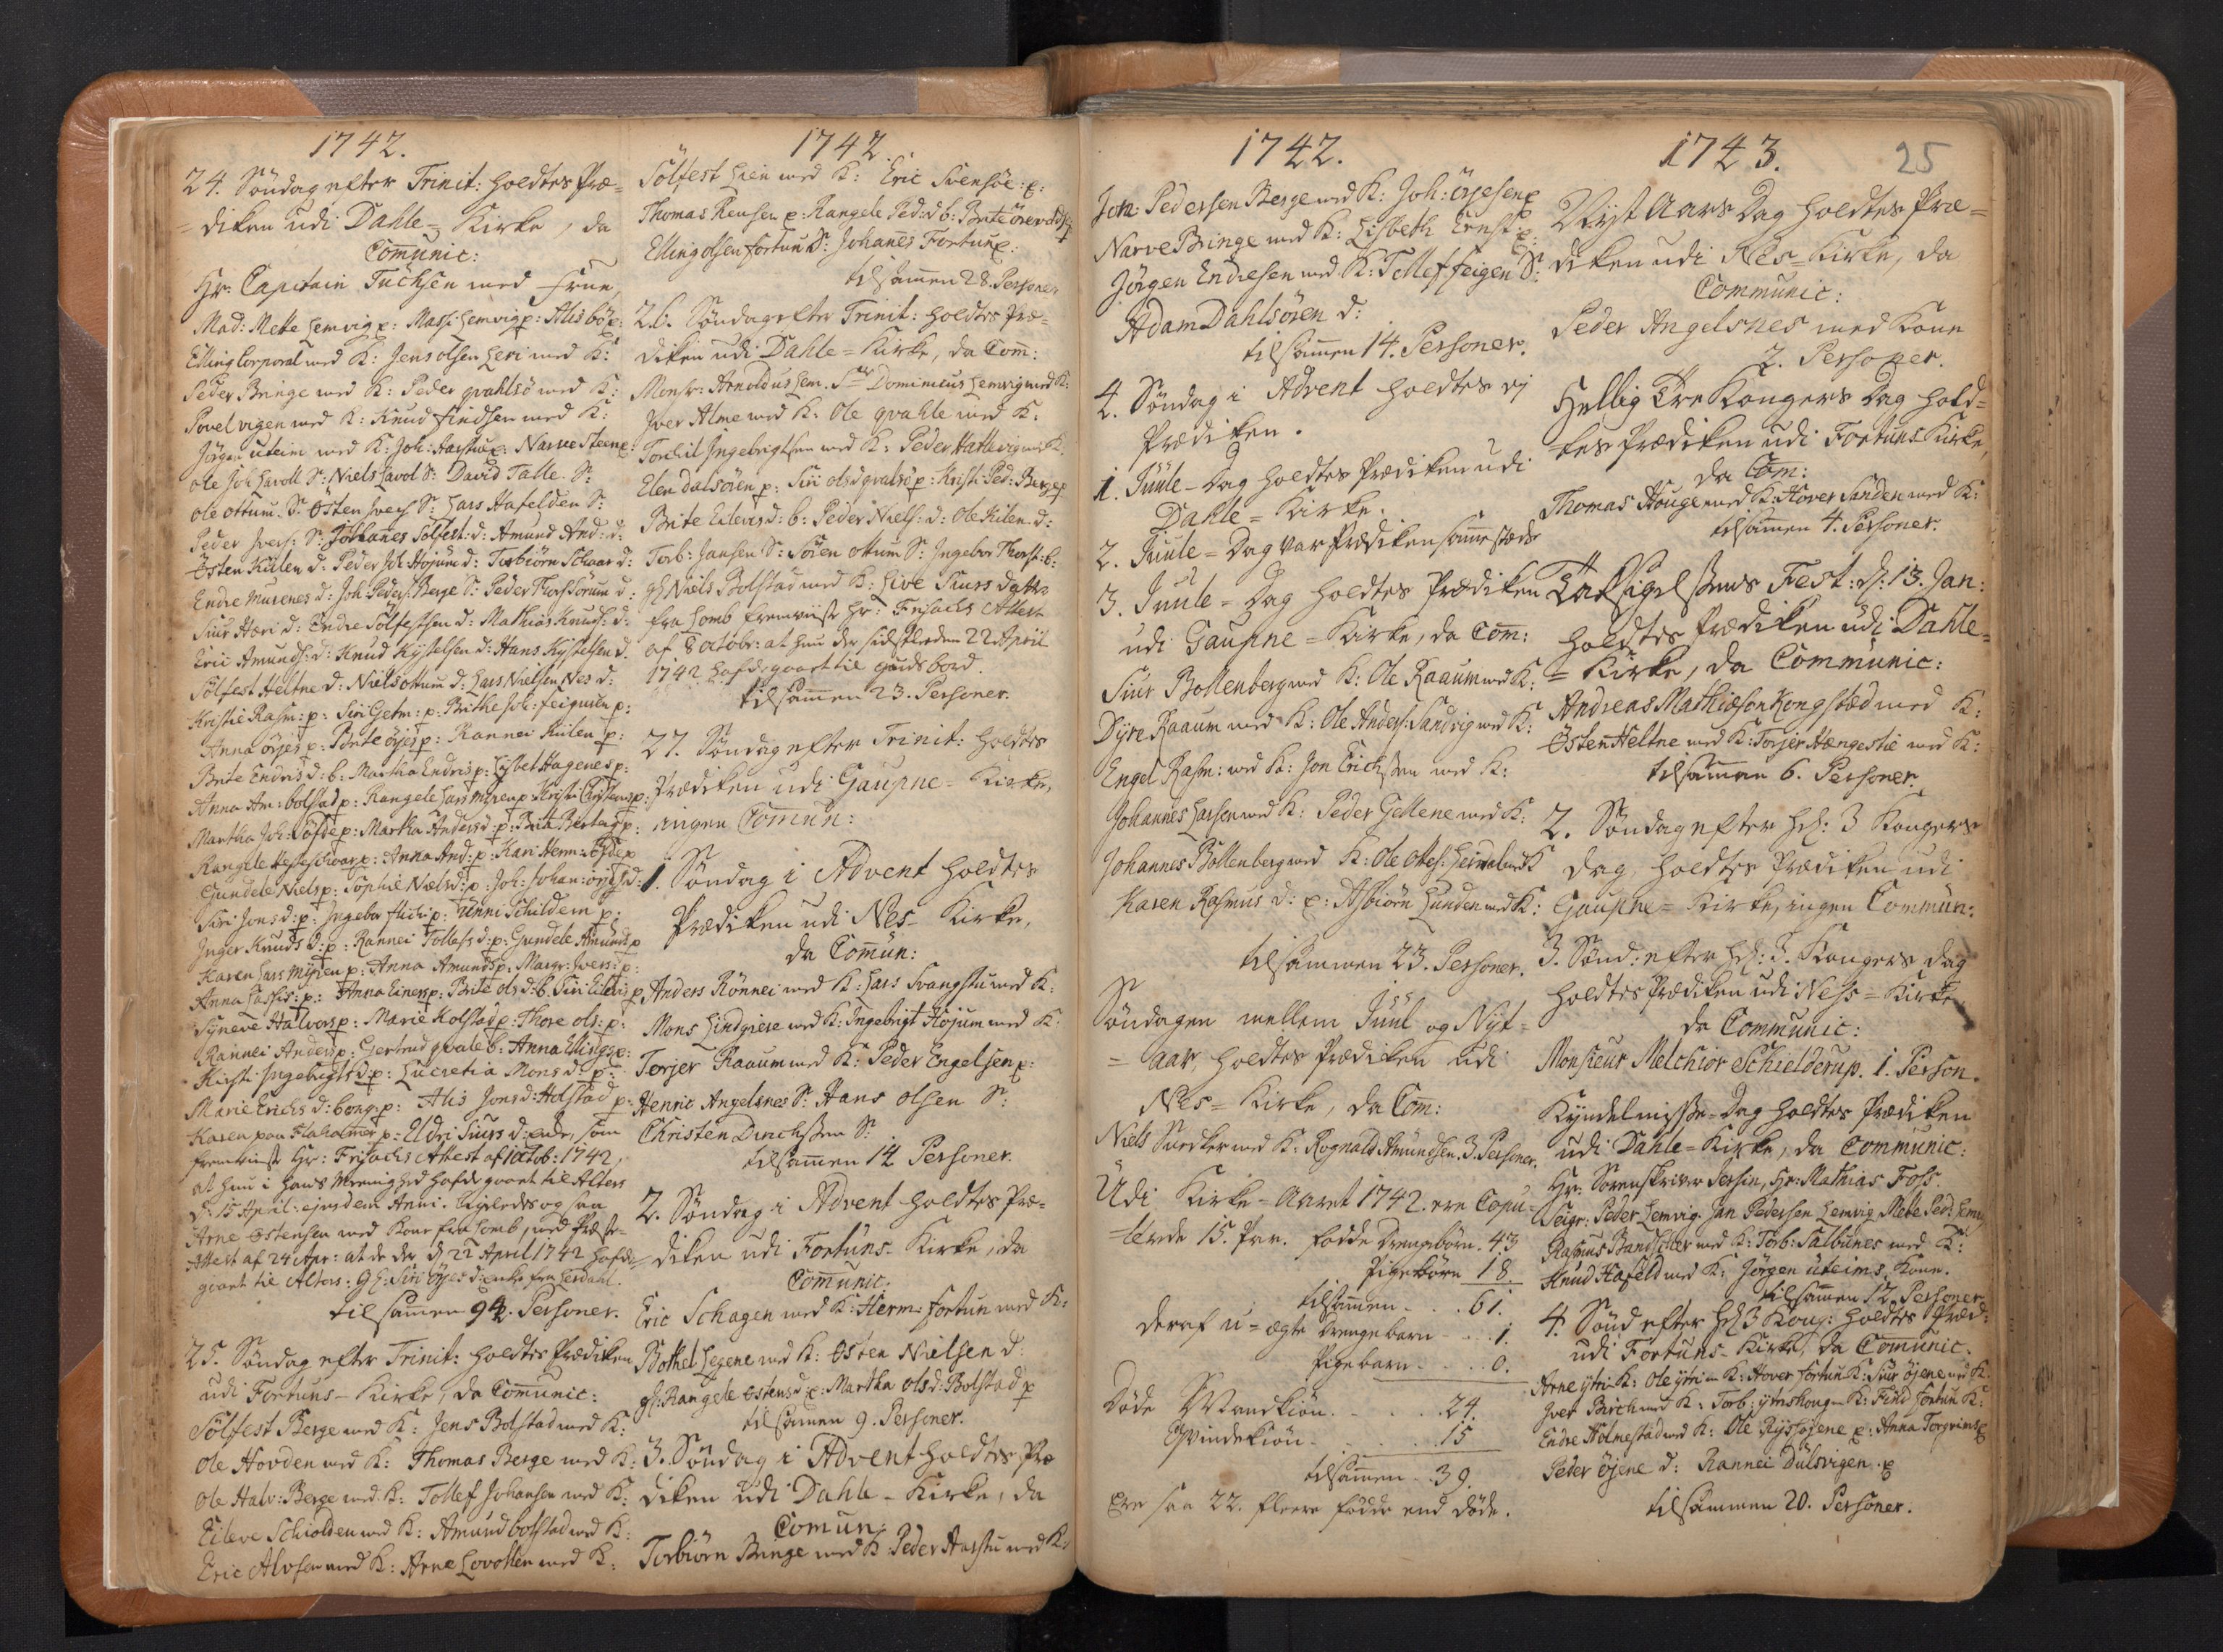 1742.
24. Söndag efter Trinit: holdtes Præ=
= diken udi Dahle= Kirke, da
Comunic:
Hr: Capitain Tuchsen med Frue,
Mad: Mette Hemvig p: Mass: Hemvig p: Alis böp:
Elling Corporal med K: Jens olsen Heri med K:
Peder Bringe med K: Peder qvahlsö med K:
Povel vigen med K: Knud findsen med K:
Jörgen uteim med K: Joh: p: Narve Steen p:
Ole Joh: S: Niels S: David Talle. S:
Ole ottum. S: Östen Ivers S: Lars Hafelden S:
Peder Ivers: S: Johanes Solfest: d: Amund And: d:
Östen Kiilen d: Peder Joh: Höjum d: Torbiörn Schaar d:
Endre Murenes d: Joh: Peders: Berge S: Peder d:
Siur Hæri d: Endre Solfestsen d: Mathias Knuds: d:
Eric Amunds: d: Knud Kjetelsen d: Hans Kjetelsen d.
Sölfest Heltne d: Niels ottum d: Lars Nielsen Nes d:
Kristie Rasm: p: Siri Getm: p: Brithe Joh: feigumen p:
Anna örjes p: Brite örjes p: Rannei Kiilen p:
Brite Endris d: b: Martha Endris p: Lisbet Hagenes p:
Anna Am: bolstad p: Rangele Lars Myren p: Kristi p:
Martha Joh: p: Martha Anders d: p: Brita p:
Rangele p: Anna And: p: Kari Herm: p
Gundele Niels p: Sophie Niels d: p: Joh: Johan: d:
Siri Jons d: p: Ingebor p: Unni Schildem p:
Inger Knuds d: p: Rannei Tollefs d: p: Gundele Amunds p
Karen Lars Myren p: Anna Amunds p: Margr: Ivers: p:
Anna p: Anna Einers p: Brite ols d: b. Siri Eilevs p,
Synneve Halvors p: Marie Kolstad p: Thore ols: p:
Rannei Anders p: Gertrud qvale b: Anna Ellings p:
Kirsti Ingebrigts d p: Lucretia Mons d: p:
Marie Erichs d: p: Alis Jons d: Holstad p:
Karen paa p: Eldri Siurs d: som
fremviiste Hr: Frisachs Attest af 1 octob: 1742,
at hun i hans Menighed hafde gaaet til Alters
d: 15 April: ejusdem Anni. ligeledes og saa
Arne Östensen med Kone fra Lomb, med Præste=
Attest af 24 Apr: at de der d 22 April 1742 hafde
gaaet til Alters: gl: Siri Öjes d: enke fra Lerdahl.
til samen 94. Personer.
25. Söndag efter Trinit: holdtes Prædiken
udi Fortuns- Kirke, da Comunic:
Sölfest Berge med K: Jens Bolstad med K:
Ole Hovden med K: Thomas Berge med K:
Ole Halv: Berge med K: Tollef Johansen med K:
Eileve Schiolden med K: Amund bolstad med K:
Eric Alvsen med K: Arne med K:
1742
Sölfest Lien med K: Eric Svensöe: p:
Thomas Rensen p: Rangele Ped: d b: Brite
Elling olsen fortun S: Johanes Fortun p:
tilsamen 28. Personer
26. Söndag efter Trinit: holdtes Præ=
diken udi Dahle= Kirke, da Com:
Monsr: Arnoldus Hem. Sr Dominicus Hemvig med K:
Iver Alme med K: Ole qvahle med K.
Torchil Ingebrigtsen med K: Peder med K.
Elen dalsören p: Siri ols d qvalsö p: Kristi Ped: Berge p
Brite Eilevs d: b: Peder Niels: d: Ole Kilen d:
Torb: Jansen S: Sören ottum S: Ingebor Thorst: b:
gl: Niels Bolstad med K: Live Siurs datter
fra Lomb fremviiste Hr: Frisachs Attest
af 8 octobr: at hun der sidstleden 22 April
1742 hafde gaaet til guds bord.
tilsamen 23. Personer.
27. Söndag efter Trinit: holdtes
Prædiken udi Gaupne- Kirke,
ingen Comun:
1. Söndag i Advent holdtes
Prædiken udi Nes- Kirke,
da Comun:
Anders Rönnei med K: Lars Svangstu med K:
Mons Lindgiere med K: Ingebrigt Höjum med K:
Torjer Raaum med K: Peder Engelsen p:
Henric Angelsnes S: Hans olsen S:
Christen Dirichssen S:
tilsamen 14 Personer.
2. Söndag i Advent holdtes Præ-
diken udi Fortuns- Kirke, da
Comunic:
Eric Schagen med K: Herm: fortun med K:
Bothel Hegene med K: Östen Nielsen d:
gl: Rangele Östens d p: Martha ols d: Bolstad p
tilsamen 9. Personer.
3. Söndag i Advent holdtes Præ
diken udi Dahle- Kirke, da
Comun:
Torbiörn Bringe med K: Peder Harstu med K:
1742.
Jon: Pedersen Berge med K: Joh: örjesen p
Narve Bringe med K: Lisbeth Ernst: p:
Jörgen Endresen med K: Tollef feigen S:
Adam Dahlsören d:
tilsamen 14. Personer.
4. Söndag i Advent holdtes ej
Prædiken.
1. Juule- Dag holdtes Prædiken udi
Dahle= Kirke.
2. Juule= Dag var Prædiken samestæds
3. Juule= Dag holdtes Prædiken
udi Gaupne= Kirke, da Com:
Siur Bollenberg med K: Ole Raaum med K:
Dyre Raaum med K: Ole Anders: Sandvig med K:
Engel Rasm: med K: Jon Erichssen med K:
Johannes Larsen med K: Peder Gellene med K:
Johannes Bollenberg med K: Ole med K
Karen Rasmus d: p: Asbiörn Hunden med K:
tilsammen 23. Personer.
Söndagen mellem Juul og Nyt=
= aar, holdtes Prædiken udi
Nes= Kirke, da Com:
Niels Snedker med K: Rognald Amundsen. 3. Personer.
Udi Kirke- Aaret 1742. ere Copu=
=lerede 15. Par. födde Drengebörn- 43
Pigebörn 18
tilsamen- . . 61.
Deraf u= ægte Drengebarn- . . 1.
Pigebarn- . . . 0.
Döde Mandkiön. . . . 24.
Qvindekiön. . . . 15
tilsamen . . 39.
Ere saa 22. fleere födde end döde.
1743. 25
Nyt Aars Dag holdtes Præ=
diken udi Nes= Kirke, da
Communic:
Peder Angelsnes med Kone
2. Personer.
Hellig Tre Kongers Dag hold=
tes Prædiken udi Fortuns Kirke,
da Com:
Thomas Houge med K: Hover Sanden med K:
tilsamen 4. Personer.
Taksigelsens Fest: d: 13. Jan:
holdtes Prædiken udi Dahle=
= Kirke, da Communic:
Andreas Mathiesøn Kongstæd med K:
Östen Heltne med K: Torjer Hængestie med K:
tilsamen 6. Personer.
2. Söndag efter hel: 3 Kongers
Dag, holdtes Prædiken udi
Gaupne= Kirke, ingen Commun:
3. Sönd: efter hel: 3. Kongers dag
holdtes Prædiken udi Ness= Kirke
da Communic:
Monsieur Melchior Schielderup. 1. Person.
Kyndelmisse- Dag holdtes Prædiken
udi Dahle= Kirke, da Communic:
Hr: Sorenskriver Jersin, Hr: Mathias Foss.
Seigr: Peder Hemvig. Jan Pedersen Hemvig Mette Ped: Hemv:
Rasmus med K: Torb: Talbunes med K:
Knud Hafeld med K: Jörgen uteims Kone.
tilsamen 12. Personer
4. Sönd efter hel 3 Kong: holdtes Præd:
udi Fortuns- Kirke, da Comunic.
Arne ytri K: Ole ytri K: Hover fortun K: Siur öjene med K.
Iver Birch med K: Torb: K: Find Fortun K:
Endre Holmestad med K: Ole p: Anna Torgrims p
Peder öjene d: Rannei Dulsvigen p
tilsammen 20. Personer.